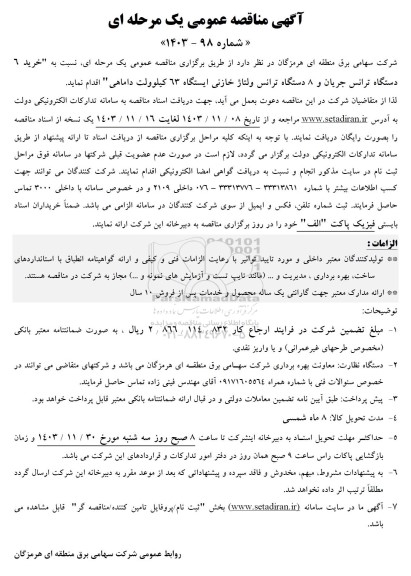 آگهی مناقصه عمومی یک مرحله ای
« شماره ۹۸ - ۱۴۰۳»
شرکت سهامی برق منطقه ای هرمزگان در نظر دارد از طریق برگزاری مناقصه عمومی یک مرحله ای، نسبت به "خرید ۶
دستگاه ترانس جریان و ۸ دستگاه ترانس ولتاژ خازنی ایستگاه ۶۳ کیلوولت داماهی" اقدام نماید.
لذا از متقاضیان شرکت در این مناقصه دعوت بعمل می آید، جهت دریافت اسناد مناقصه به سامانه تدارکات الکترونیکی دولت
به آدرس www.setadiran.ir مراجعه و از تاریخ ۰۸ / ۱۱ / ۱۴۰۳ لغایت ۱۶ / ۱۱ / ۱۴۰۳ یک نسخه از اسناد مناقصه
را بصورت رایگان دریافت نمایند. با توجه به اینکه کلیه مراحل برگزاری مناقصه از دریافت اسناد تا ارائه پیشنهاد از طریق
سامانه تدارکات الکترونیکی دولت برگزار می گردد، لازم است در صورت عدم عضویت قبلی شرکتها در سامانه فوق مراحل
ثبت نام در سایت مذکور انجام و نسبت به دریافت گواهی امضا الکترونیکی اقدام نمایند. شرکت کنندگان می توانند جهت
کسب اطلاعات بیشتر با شماره ۳۳۳۱۳۸۶۱ – ۳۳۳۱۳۷۷۶ - ۰۷۶ داخلی ۲۱۰۹ و در خصوص سامانه با داخلی ۳۰۰۰ تماس
حاصل فرمایند. ثبت شماره تلفن، فکس و ایمیل از سوی شرکت کنندگان در سامانه الزامی می باشد. ضمناً خریداران اسناد
بایستی فیزیک پاکت "الف" خود را در روز برگزاری مناقصه به دبیرخانه این شرکت ارائه نمایند.
الزامات :
** تولیدکنندگان معتبر داخلی و مورد تایید توانیر با رعایت الزامات فنی و کیفی و ارائه گواهینامه انطباق با استانداردهای
ساخت، بهره برداری ، مدیریت و ... (مانند تایپ تست و آزمایش های نمونه و ...) مجاز به شرکت در مناقصه هستند.
** ارائه مدارک معتبر جهت گارانتی یک ساله محصول و خدمات پس از فروش ۱۰ سال
توضیحات:
۱- مبلغ تضمین شرکت در فرایند ارجاع کار ۸۳۲ , ۱۱۴ , ۸۶۶ , ۲ ریال ، به صورت ضمانتنامه معتبر بانکی
(مخصوص طرحهای غیرعمرانی) و یا واریز نقدی.
۲- دستگاه نظارت: معاونت بهره برداری شرکت سهامی برق منطقه ای هرمزگان می باشد و شرکتهای متقاضی می توانند در
خصوص سئوالات فنی با شماره همراه ۰۹۱۷۱۶۰۵۵۶۴ آقای مهندس فینی زاده تماس حاصل فرمایند.
۳- پیش پرداخت: طبق آیین نامه تضمین معاملات دولتی و در قبال ارائه ضمانتنامه بانکی معتبر قابل پرداخت خواهد بود.
۴- مدت تحویل کالا: ۸ ماه شمسی
۵- حداکثر مهلت تحویل اسناد به دبیرخانه اینشرکت تا ساعت ۸ صبح روز سه شنبه مورخ ۳۰ / ۱۱ / ۱۴۰۳ و زمان
بازگشایی پاکات راس ساعت ۹ صبح همان روز در دفتر امور تدارکات و قراردادهای این شرکت می باشد.
۶- به پیشنهادات مشروط، مبهم، مخدوش و فاقد سپرده و پیشنهاداتی که بعد از موعد مقرر به دبیرخانه این شرکت ارسال گردد
مطلقاً ترتیب اثر داده نخواهد شد.
۷- آگهی ما در سایت سامانه (www.setadiran.ir) بخش "ثبت نام/پروفایل تامین کننده/مناقصه گر" قابل مشاهده می
باشد.
روابط عمومی شرکت سهامی برق منطقه ای هرمزگان